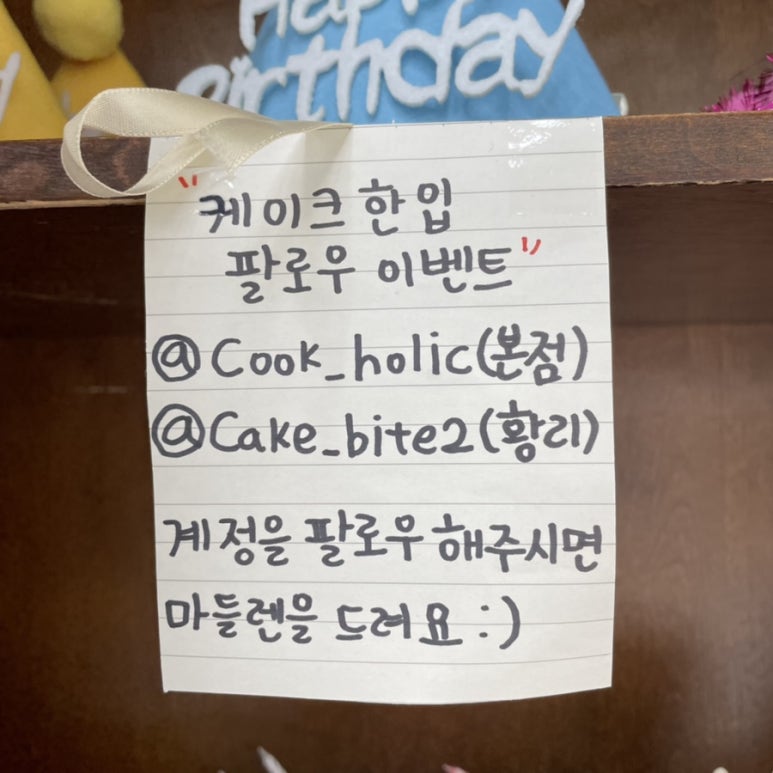 Happy
Birthday
y
"케이크 한입
팔로우 이벤트"
@Cook_holic(본점)
@Cake_bite2(황리)
계정을 팔로우 해주시면
마들렌을 드려요 :)